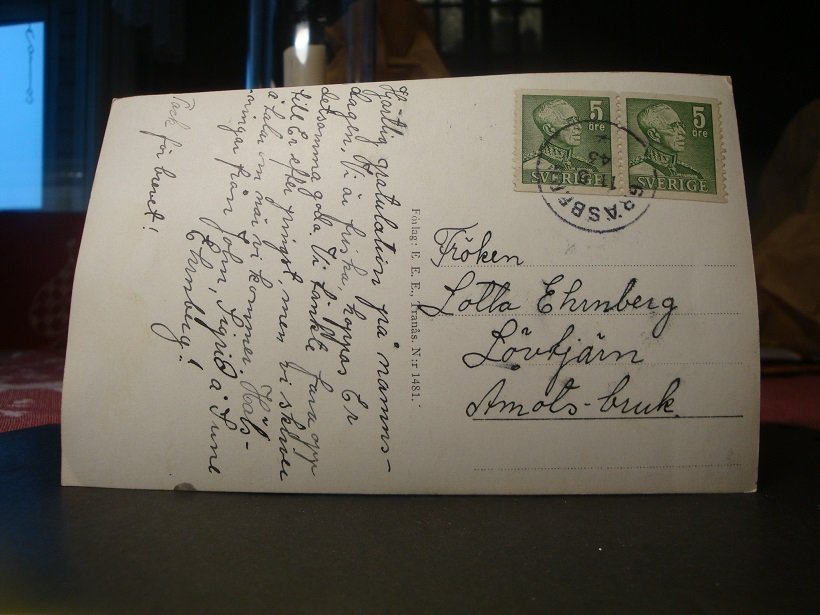 Hjärtlig gratulation på namns-
dagen. Vi är friska, hoppas Er
detsamma goda. Vi tänkte fara opp
till Er efter pingst, men vi skriver
å talar om när vi kommer. Häls-
ningar från John, Sigrid å Sune
Ehrnberg!
Tack för brevet!
Förlag: E. E. E., Tranås. N:r 1481.
5
öre
SVERIGE
5
öre
SVERIGE
43
Fröken
Lotta Ehrnberg
Lövtjärn
Amots-bruk.